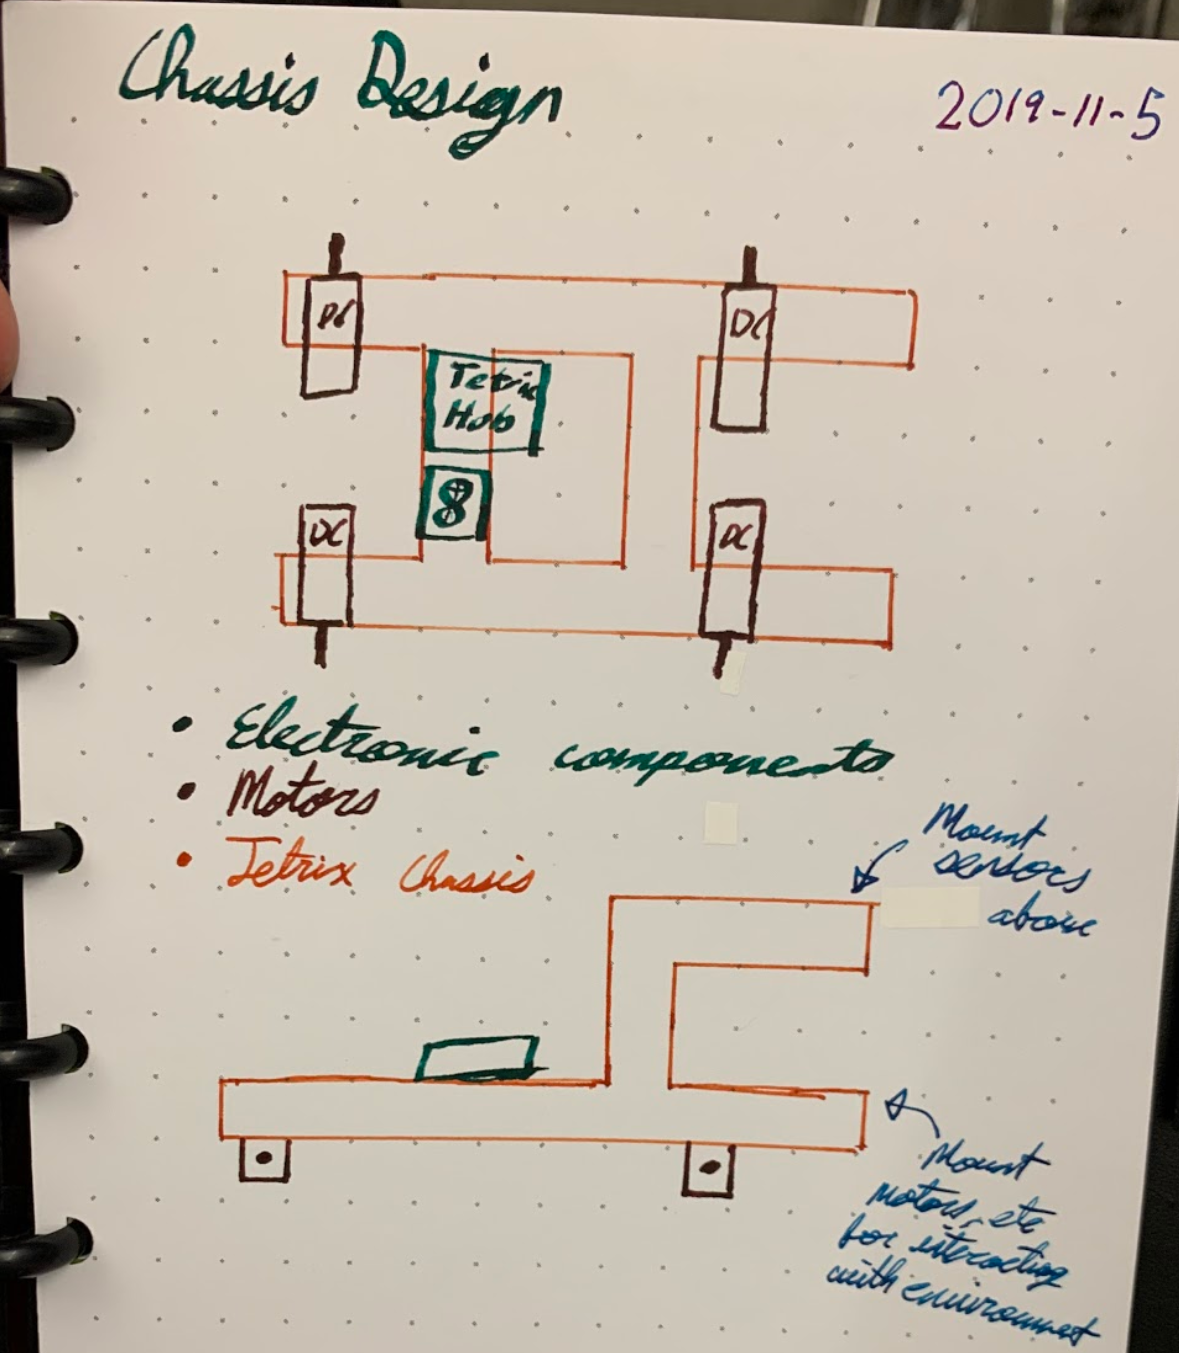 Chassis Design
2019-11-5
DC
DC
Tetrix
Hub
8
DC
DC
• Electronic components
• Motors
• Tetrix Chassis
Mount
sensors
above
Mount
motors, etc
for interacting
with environment